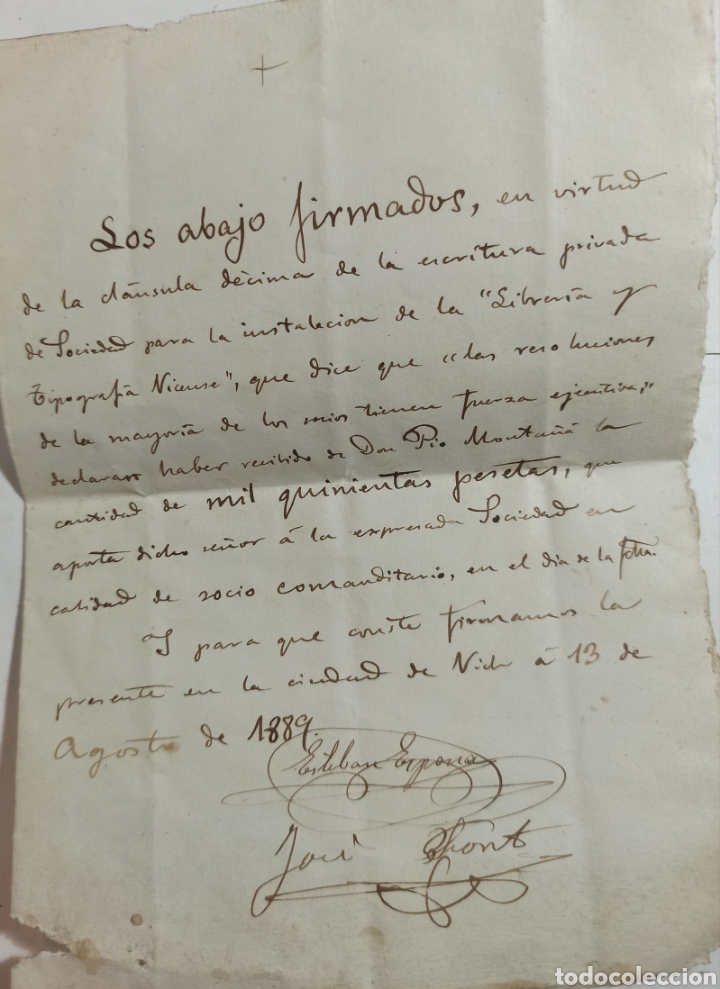 +
Los abajo firmados, en virtud
de la cláusula décima de la escritura privada
de Sociedad para la instalacion de la "Librería y
Tipografía Vicense", que dice que "las resoluciones
de la mayoría de los socios tienen fuerza ejecutiva,"
declaran haber recibido de Don Pio Montañá la
cantidad de mil quinientas pesetas, que
aporta dicho señor á la expresada Sociedad en
calidad de socio comanditario, en el dia de la fcha.
Y para que conste firmamos la
presente en la ciudad de Vich á 13 de
Agosto de 1889.
Esteban Espona
José Font
todocoleccion